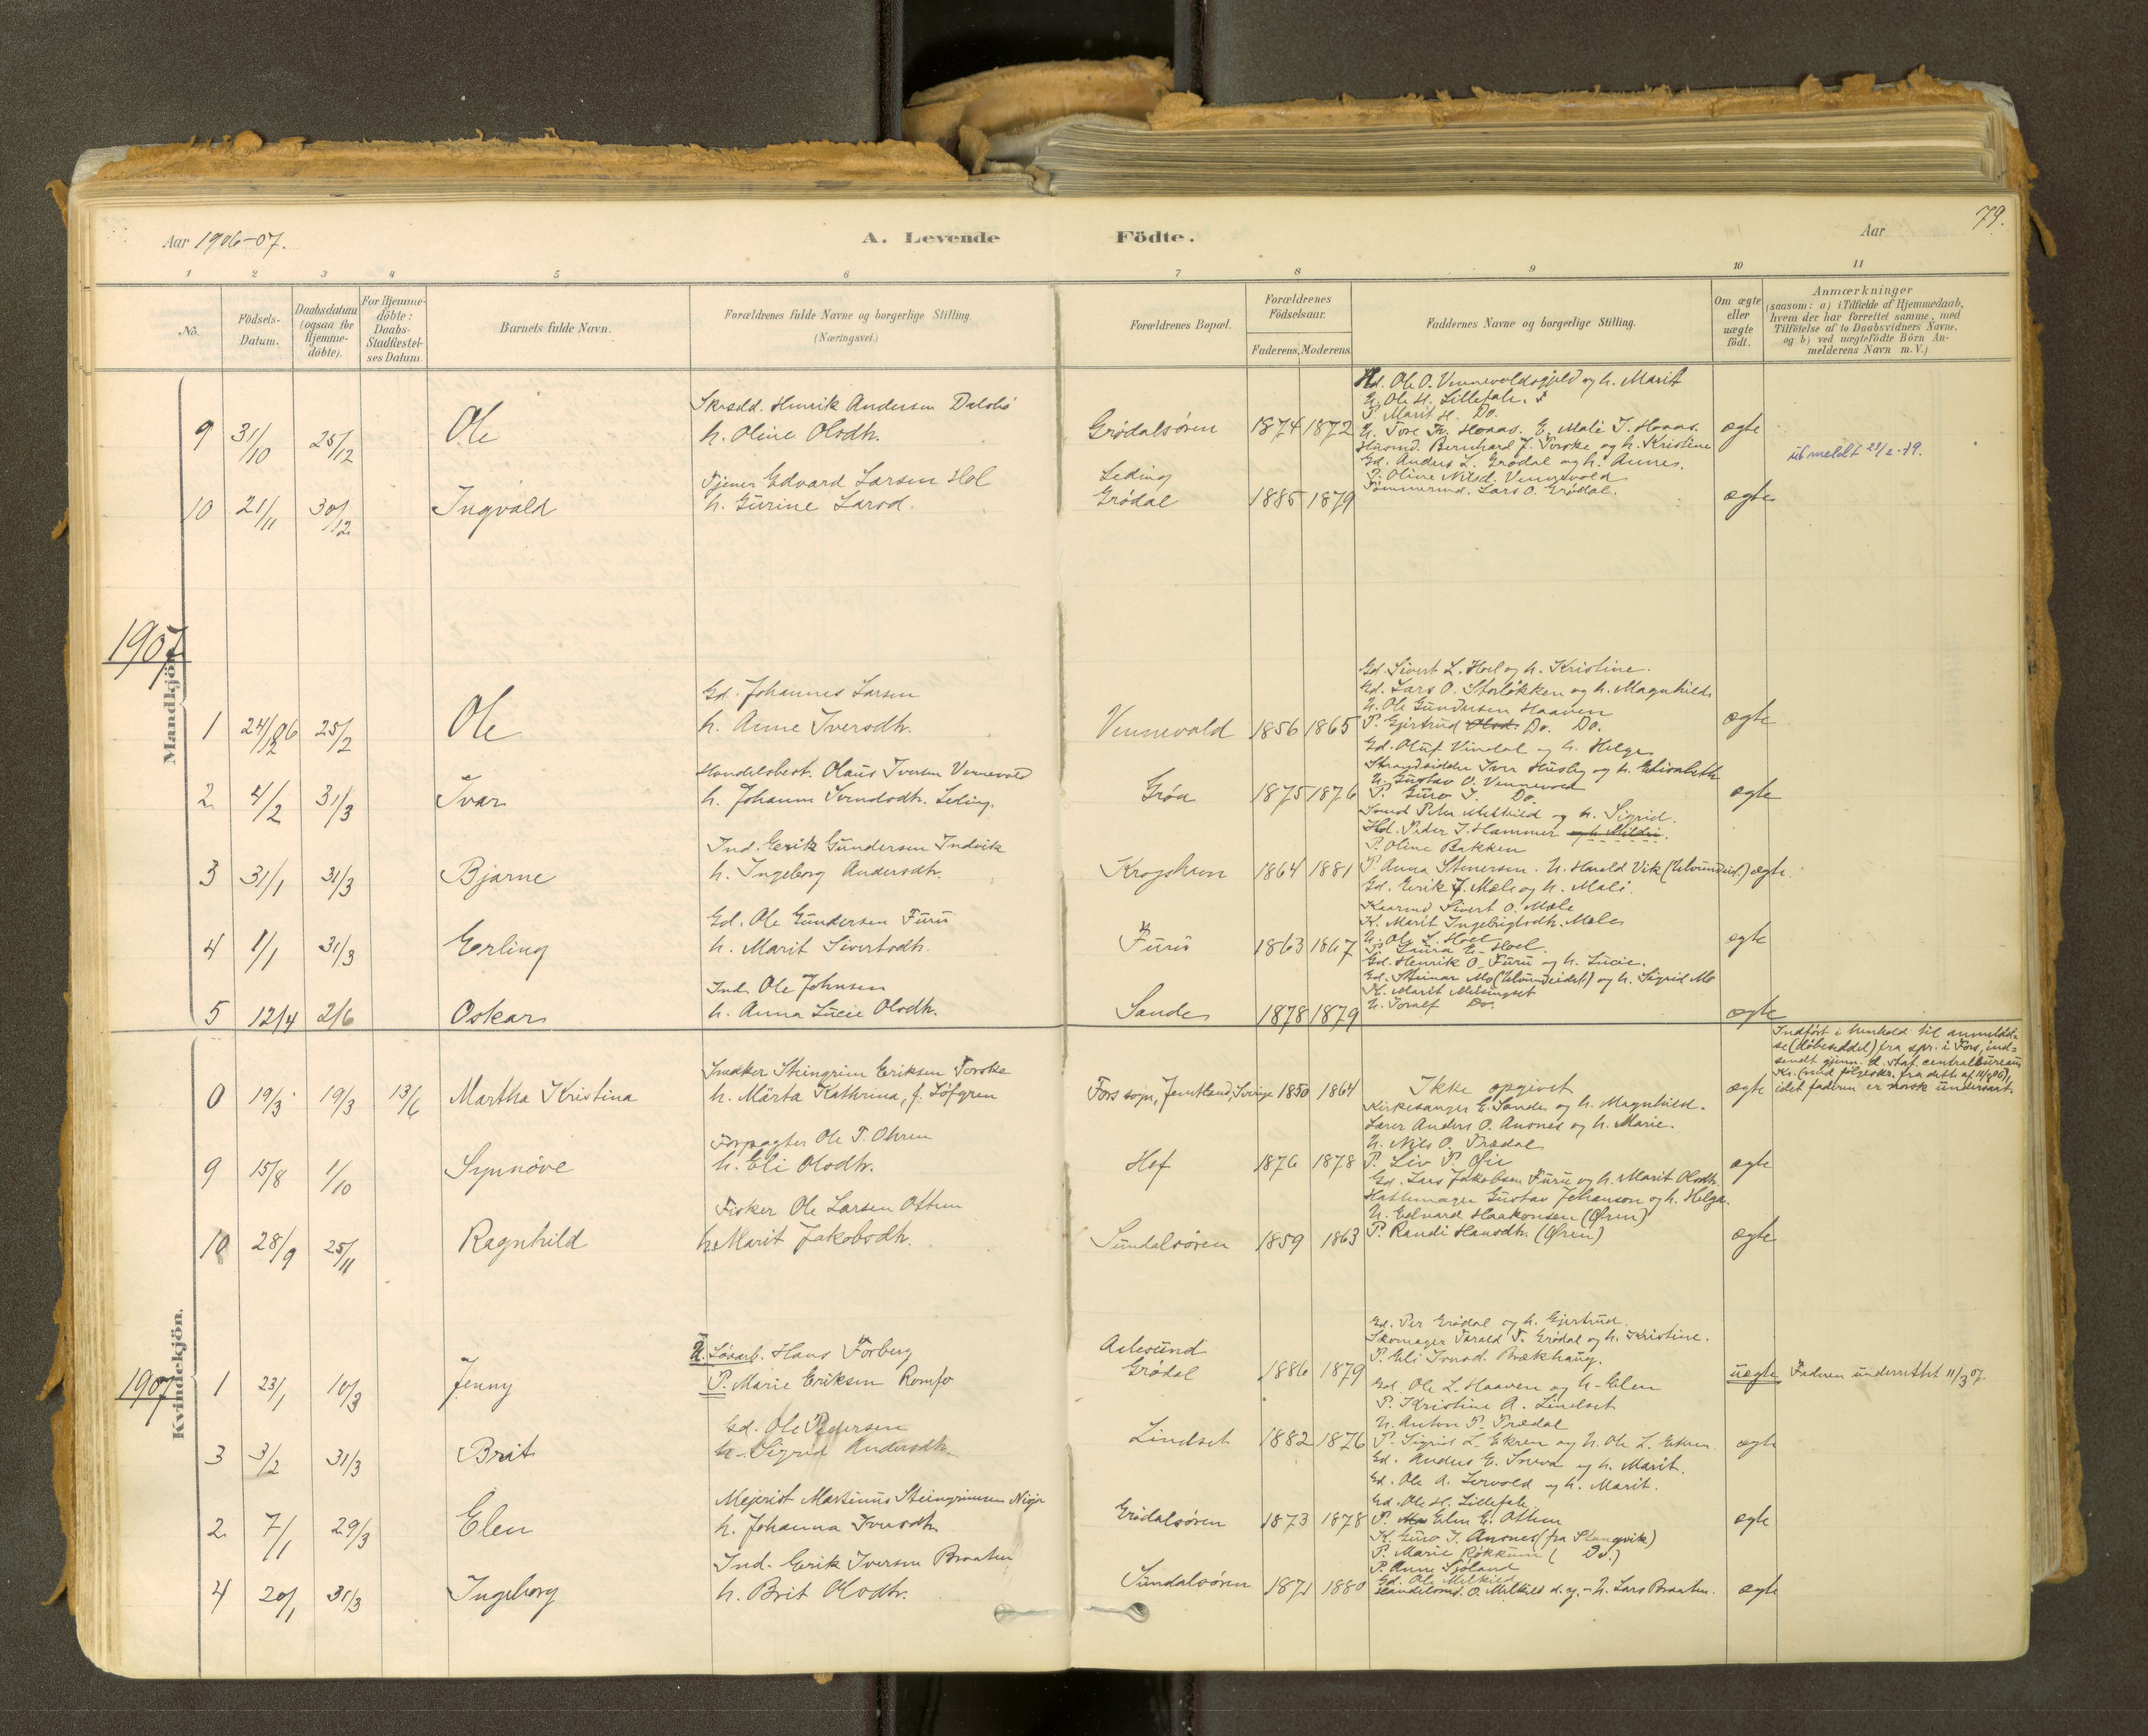 79.
Aar 1906-07.
A. Levende Födte.
Aar
1 2 3 4 5 6 7 8 9 10 11
No.
Födsels-Datum.
Daabsdatum (ogsaa for Hjemme-döbte).
For Hjemme-döbte: Daabs-Stadfæstel-ses Datum.
Barnets fulde Navn.
Forældrenes fulde Navne og borgerlige Stilling
(Næringsvei.)
Forældrenes Bopæl.
Forældrenes Födselsaar.
Faderens. Moderens.
Faddernes Navne og borgerlige Stilling.
Om ægte eller uægte födt.
Anmærkninger
(saasom: a) i Tilfælde af Hjemmedaab,
hvem der har forrettet samme, med
Tilföielse af to Daabsvidners Navne,
og b) ved uægtefödte Börn An-
melderens Navn m. V.)
Mandkjön.
9 31/10 25/12 Ole
Skrædd. Henrik Andersen Dalsbö
h. Oline Olsdh.
Grödalsören 1874 1872
Gd. Ole O. Vennevoldsgjeld og h. Marit
E. Ole H. Lillefale.
P. Marit H. Do.
U. Tore Tr. Hoaas. E. Mali I. Hoaas.
Husmd. Bernhard J. Torske og h. Kristine
ægte
utmeldt 22/2-19.
10 21/11 30/12 Ingvald
Tjener Edvard Larsen Hol
h. Gurine Larsd.
Leding
Grödal 1885 1879
Gd. Anders L. Grödal og h. Anne.
P. Oline Nilsd. Vengsvold
Tömmermd. Lars O. Grödal.
ægte
1907
1 24/12 06 25/2 Ole
Gd. Johannes Larsen
h. Anne Iversdh.
Vennevold 1856 1865
Gd. Sivert L. Hoel og h. Kristine.
Gd. Lars O. Storlökken og h. Magnhild
U. Ole Gundersen Haaven
P. Gjertrud Olsd. Do. Do.
ægte
2 4/2 31/3 Ivar
Handelsbest. Olaus Iversen Vennevold
h. Johanne Svendsdh. Leding.
Gröa 1875 1876
Gd. Oluf Vindal og h. Helge
Strandsidder Iver Husby og h. Elisabeth
U. Gustav O. Vennevold
P. Guro I. Do.
ægte
3 31/1 31/3 Bjarne
Ind. Eerik Gundersen Indvik
h. Ingeborg Andersdh.
Kroghaven 1864 1881
Smed Peter Melkild og h. Sigrid.
Hd. Peder I. Hammer og h. Mildri.
P. Oline Bakken
P. Anna Stenersen. U. Harald Vik (Ulvundeid.)
ægte
4 1/1 31/3 Erling
Gd. Ole Gundersen Furu
h. Marit Sivertsdh.
Furu 1863 1867
Gd. Eerik J. Mæle og h. Mali.
Kaarmd Sivert O. Mæle
K. Marit Ingebrigtsdh. Mæle
U. Ole L. Hoel
P. Laura E. Hoel.
ægte
5 12/4 2/6 Oskar
Ind. Ole Johnsen
h. Anna Lucie Olsdh.
Sande 1878 1879
Gd. Henrik O. Furu og h. Lucie.
Gd. Steinar Mo (Ulvundeidet) og h. Sigrid Mo
K. Marit Meisingset
U. Toralf Do.
ægte
Kvindekjön.
0 19/3 19/3 13/6 Martha Kristina
Snedker Steingrim Eriksen Torske
h. Märta Kathrina, f. Löfgren
Fors sogn, Jemtland, Sverige 1850 1864
Ikke opgivet
ægte
Indført i henhold til anmeldel-
se (döbeseddel) fra spr. i Fors, ind-
sendt gjenn. d. stat. centralbureau
Kr. (med følgeskr. fra dette af 14/9 06),
idet faderen er norsk undersaat.
9 15/8 1/10 Synnöve
Forpagter Ole T. Ohren
h. Eli Olsdh.
Hof 1876 1878
Kirkesanger E. Sande og h. Magnhild.
Lærer Anders O. Ansnes og h. Marie.
U. Nils O. Trædal
P. Liv P. Øie
ægte
10 28/9 25/11 Ragnhild
Fisker Ole Larsen Ottem
h. Marit Jakobsdh.
Sundalsören 1859 1863
Gd. Lars Jakobsen Furu og h. Marit Olsdh.
Hattemager Gustav Johanson og h. Helga.
U. Edvard Haakonsen (Øren)
P. Randi Hansdh. (Øren)
ægte
1907
1 23/1 10/3 Jenny
U. Lösarb. Hans Forberg
P. Marie Eriksen Romfo
Aalesund
Grödal 1886 1879
Gd. Per Grödal og h. Gjertrud.
Skomager Tarald T. Grödal og h. Kristine.
P. Eli Iversd. Brækhaug.
uægte
Faderen underrettet 11/3 07.
3 3/2 31/3 Brit
Gd. Ole Pedersen
h. Sigrid Andersdh.
Lindset 1882 1876
Gd. Ole L. Haaven og h. Elen
P. Kristine A. Lindset
U. Anton P. Trædal
P. Sigrid L. Ekren og U. Ole L. Ekren
ægte
2 7/1 29/3 Elen
Mejerist Martinus Steingrimsen Nisja
h. Johanna Iversdh.
Grödalsören 1873 1878
Gd. Anders E. Sneva og h. Marit.
Gd. Ole A. Lervold og h. Marit.
Gd. Ole H. Lillefale
P. Elen E. Ottem
ægte
4 20/1 31/3 Ingeborg
Ind. Eerik Iversen Braaten
h. Brit Olsdh.
Sundalsören 1871 1880
K. Guro I. Ansnes (fra Stangvik)
P. Marie Røkkum ( Do.)
P. Anne Sjöland
Gd. Ole Melkild
Handelsmd. O. Melkild d. y. - U. Lars Braaten.
ægte